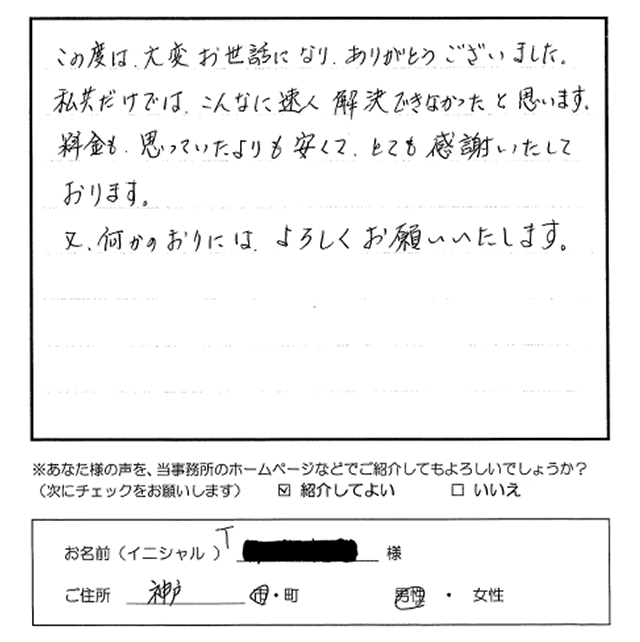 この度は、大変お世話になり、ありがとうございました。
私共だけでは、こんなに速く解決できなかったと思います。
料金も、思っていたよりも安くて、とても感謝いたして
おります。
又、何かのおりには、よろしくお願いいたします。
※あなた様の声を、当事務所のホームページなどでご紹介してもよろしいでしょうか？
（次にチェックをお願いします） ☑ 紹介してよい □ いいえ
お名前（イニシャル）T 様
ご住所 神戸 市・町 男性 ・ 女性